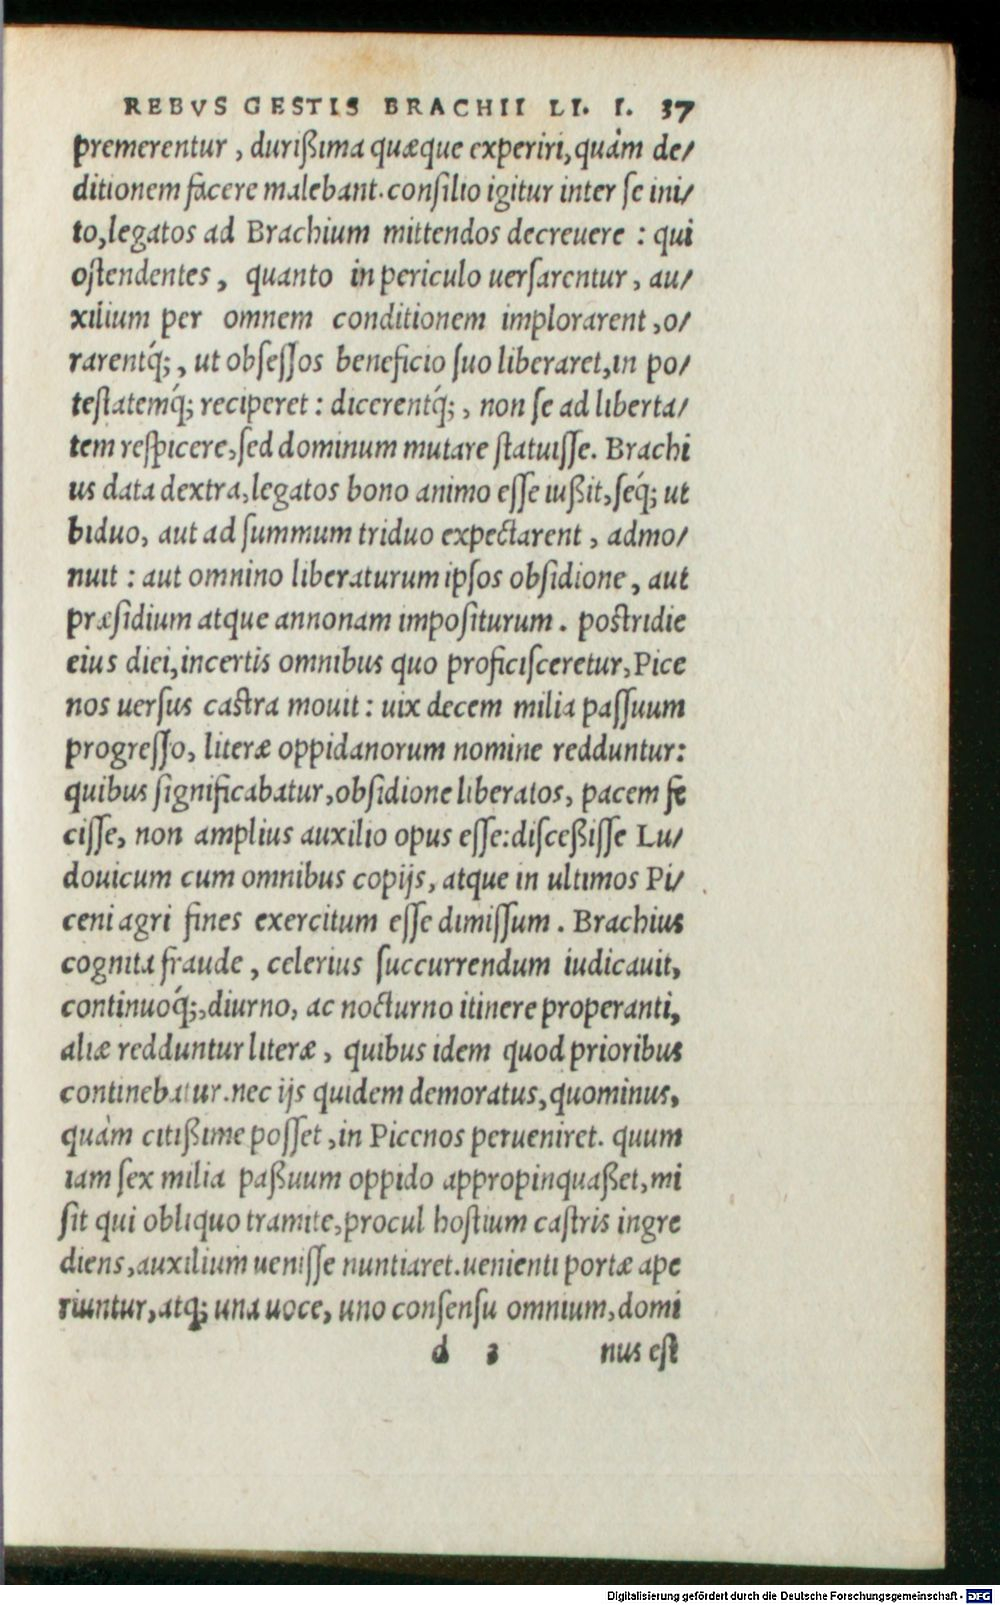 REBVS GESTIS BRACHII LI. I. 37
premerentur, durißima quæque experiri, quàm de/
ditionem facere malebant. consilio igitur inter se ini/
to, legatos ad Brachium mittendos decreuere : qui
ostendentes, quanto in periculo uersarentur, au/
xilium per omnem conditionem implorarent, o/
rarentq́;, ut obsessos beneficio suo liberaret, in po/
testatemq́; reciperet : dicerentq́;, non se ad liberta/
tem respicere, sed dominum mutare statuisse. Brachi
us data dextra, legatos bono animo esse iußit, seq́; ut
biduo, aut ad summum triduo expectarent, admo/
nuit : aut omnino liberaturum ipsos obsidione, aut
præsidium atque annonam impositurum. postridie
eius diei, incertis omnibus quo proficisceretur, Pice
nos uersus castra mouit : uix decem milia passuum
progresso, literæ oppidanorum nomine redduntur:
quibus significabatur, obsidione liberatos, pacem fe
cisse, non amplius auxilio opus esse: disceßisse Lu/
douicum cum omnibus copijs, atque in ultimos Pi/
ceni agri fines exercitum esse dimissum. Brachius
cognita fraude, celerius succurrendum iudicauit,
continuoq́;, diurno, ac nocturno itinere properanti,
aliæ redduntur literæ, quibus idem quod prioribus
continebatur. nec ijs quidem demoratus, quominus,
quàm citißime posset, in Picenos perueniret. quum
iam sex milia paßuum oppido appropinquaßet, mi
sit qui obliquo tramite, procul hostium castris ingre
diens, auxilium uenisse nuntiaret. uenienti portæ ape
riuntur, atq; una uoce, uno consensu omnium, domi
d 3 nus est
Digitalisierung gefördert durch die Deutsche Forschungsgemeinschaft - DFG